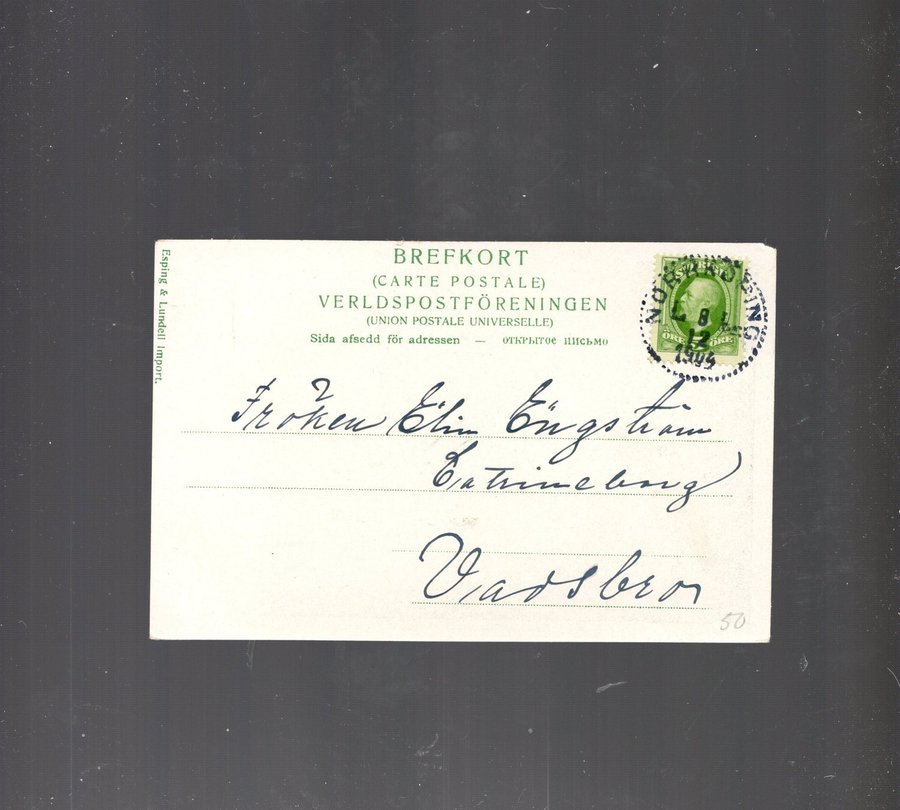 BREFKORT
(CARTE POSTALE)
VERLDSPOSTFÖRENINGEN
(UNION POSTALE UNIVERSELLE)
Sida afsedd för adressen — открытое письмо
Esping & Lundell Import.
NORRKÖPING
8
12
ÖRE ÖRE
Fröken Elin Engström
Catrineborg
Vadsbro
50